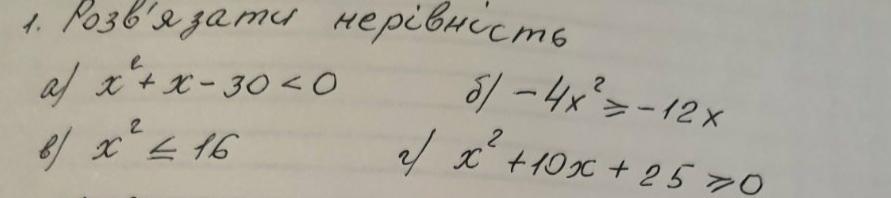 1. Розв'язати нерівність
а) x² + x - 30 < 0 б) -4x² ≥ -12x
в) x² ≤ 16 г) x² + 10x + 25 ≥ 0